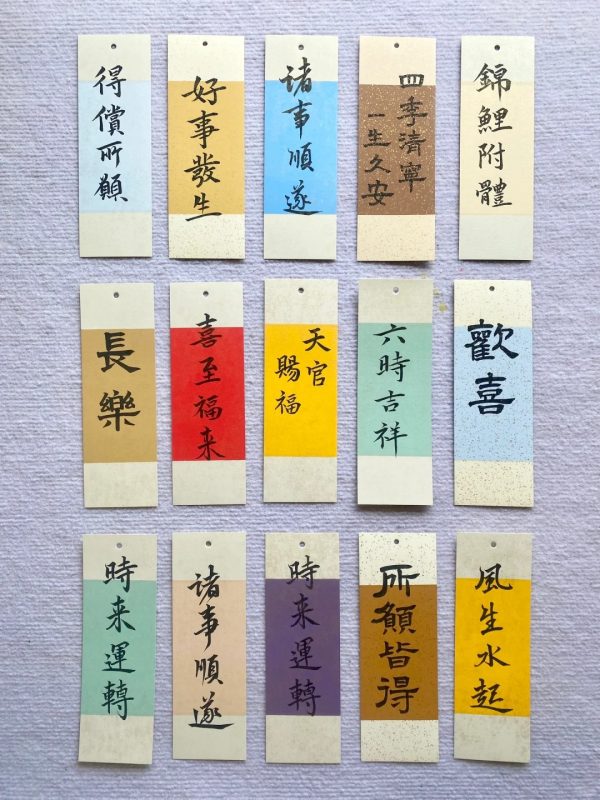 得償所願
好事發生
諸事順遂
四季清寧
一生久安
錦鯉附體
長樂
喜至福来
天官
賜福
六時吉祥
歡喜
時来運轉
諸事順遂
時来運轉
所願皆得
風生水起